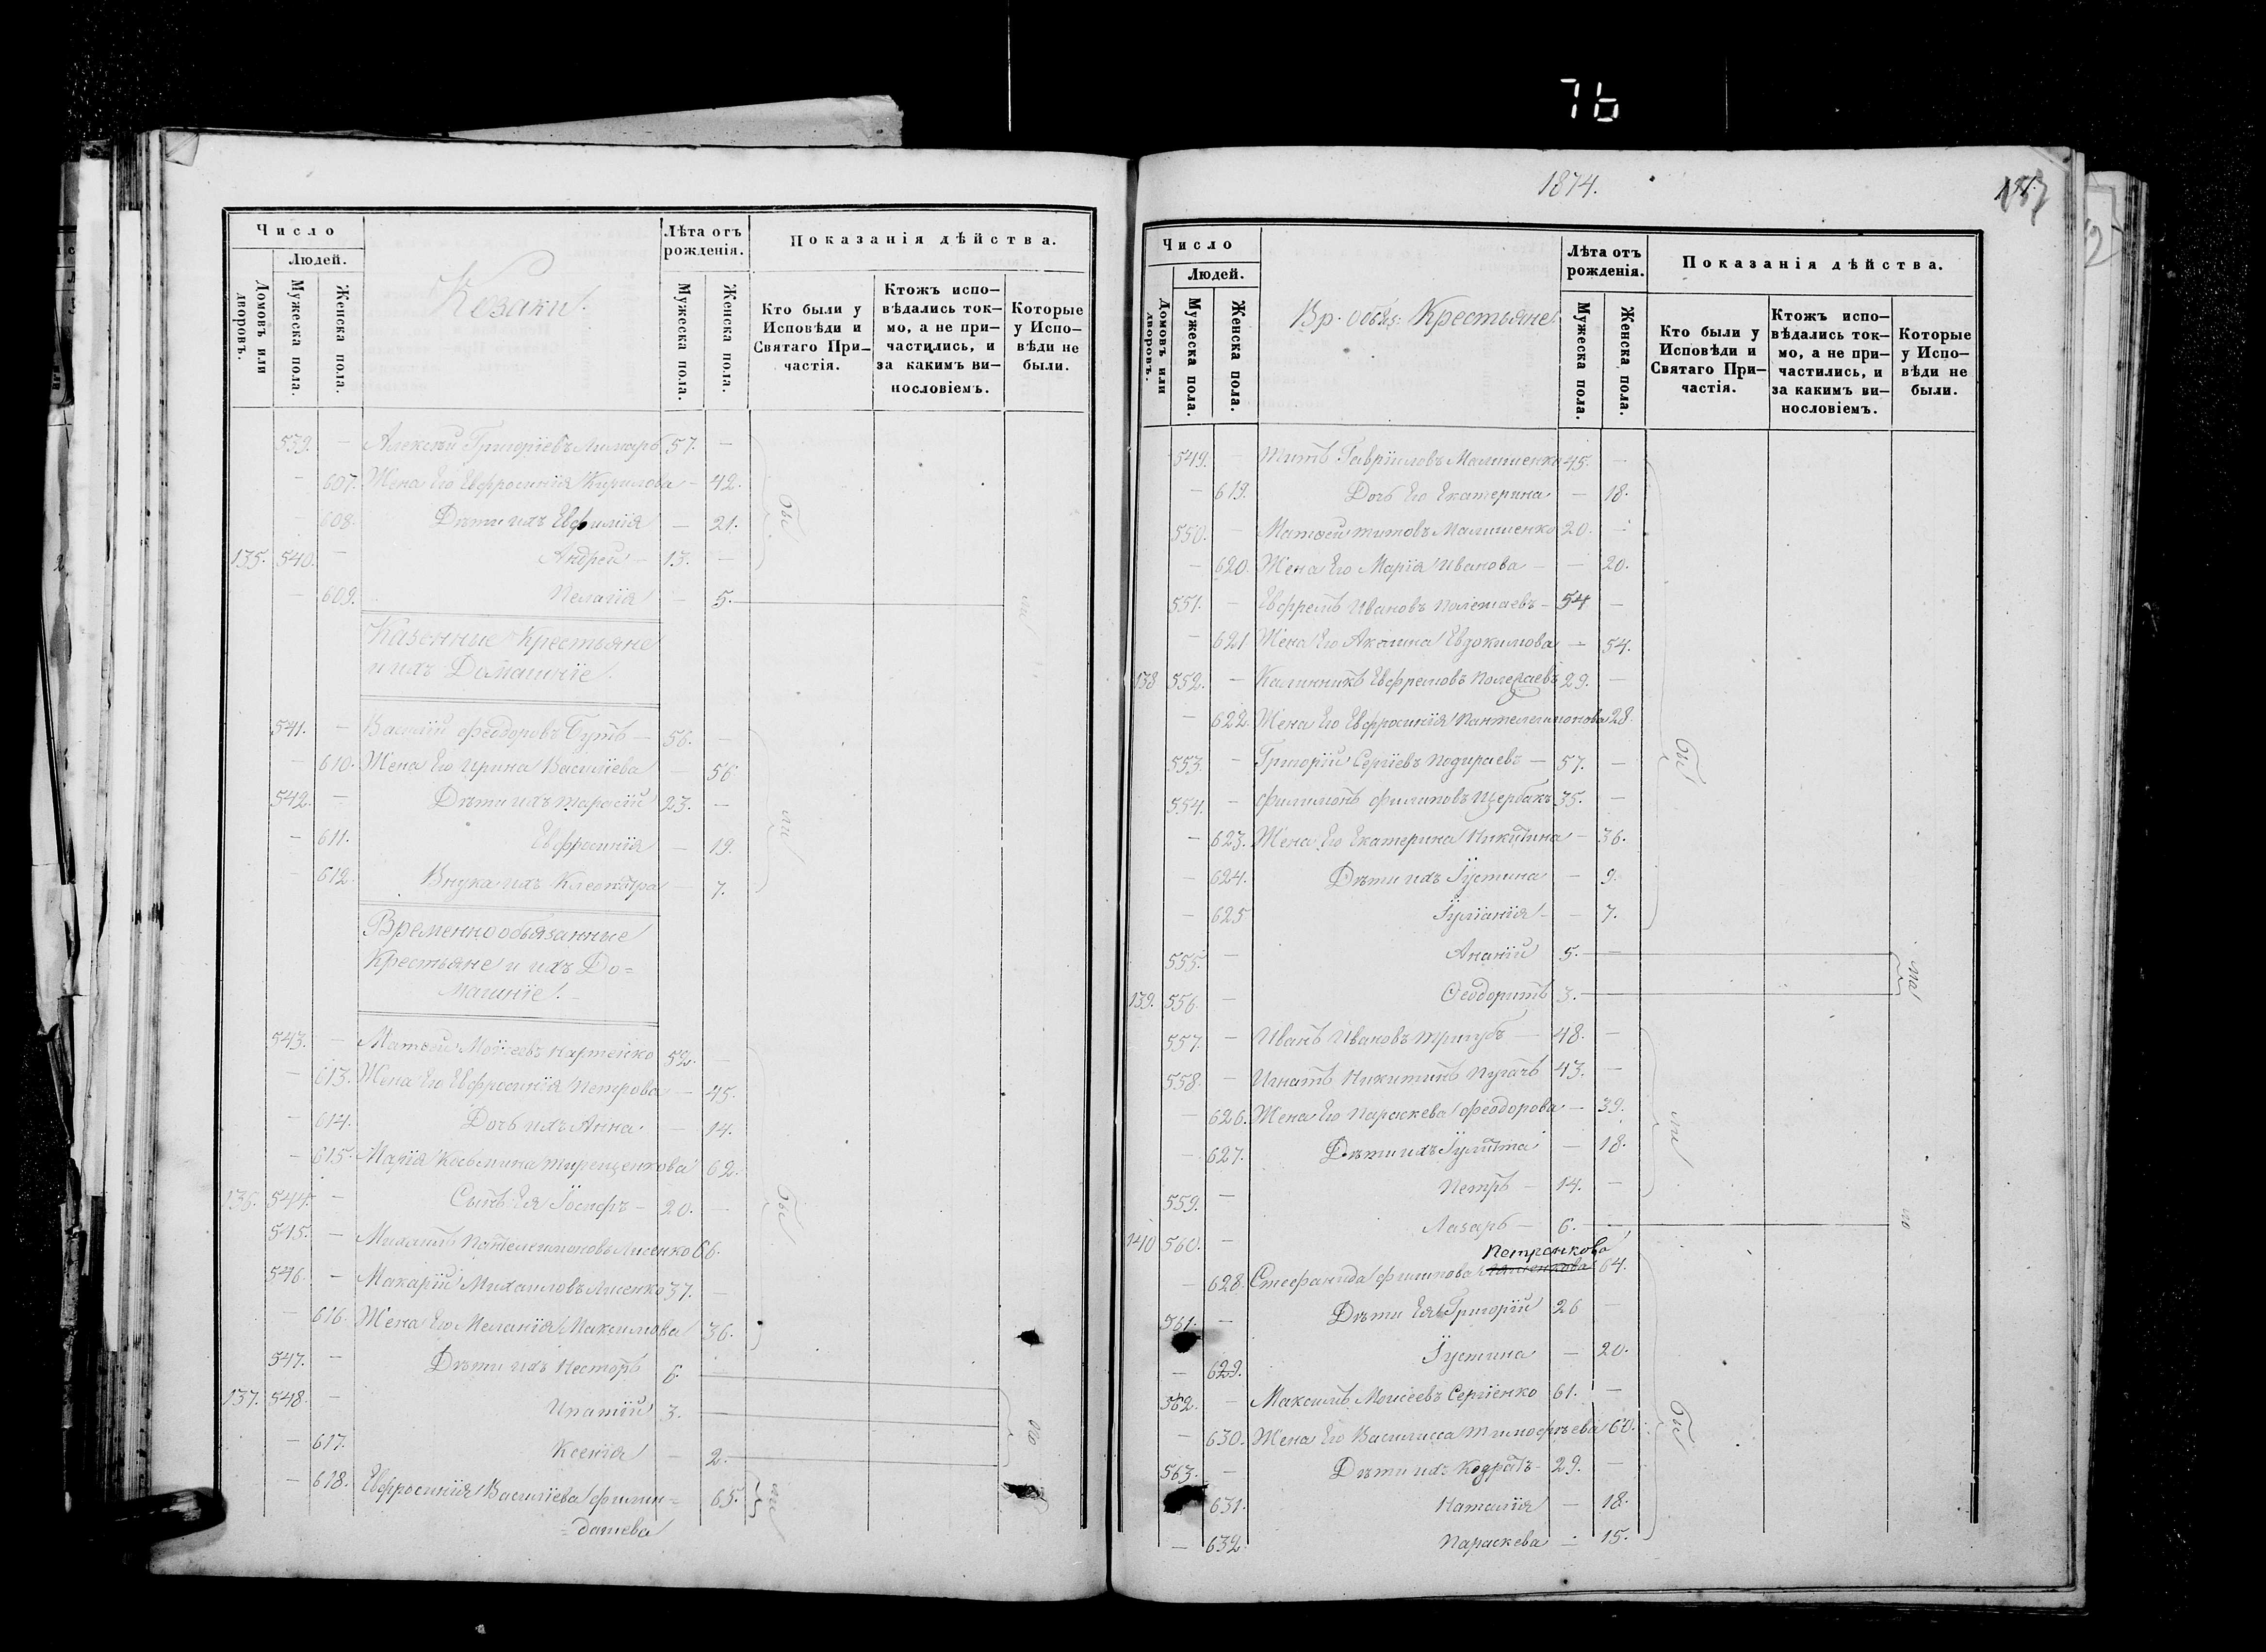 76
Число
Людей.
Домовъ или дворовъ.
Мужеска пола.
Женска пола.
Козаки.
Лѣта отъ рожденія.
Мужеска пола.
Женска пола.
Показанія дѣйства.
Кто были у Исповѣди и Святаго При-частія.
Ктожъ испо-вѣдались ток-мо, а не при-частились, и за какимъ ви-нословіемъ.
Которые у Испо-вѣди не были.
539. – Алексѣй Григоріевъ Лимарь 57. –
– 607. Жена Его Евфросинія Кирилова – 42.
– 608. Дѣти ихъ Евфимія – 21.
135. 540. – Андрей – 13. –
– 609. Пелагія – 5.
Казенные Крестьяне
и ихъ Домашніе.
541. – Василій Феодоровъ Бутъ – 56. –
– 610. Жена Его Ирина Василіева – 56.
542. – Дѣти ихъ Тарасій 23. –
– 611. Евфросинія – 19.
– 612. Внука ихъ Клеопатра – 7.
Временнообязанные
Крестьяне и ихъ До=
машніе. –
543. – Матѳей Моѵсеевъ 52. –
– 613. Жена Его Евфросинія Петрова – 45.
– 614. Дочь ихъ Анна – 14.
– 615. Марія Косьмина 62.
136. 544. – Сынъ Ея Іосифъ – 20. –
545. – Михаилъ Пантелеимоновъ Лисенко 66.
546. – Макарій Михаиловъ Лисенко 37. –
– 616. Жена Его Меланія Максимова 36.
547. – Дѣти ихъ Несторъ 6.
137. 548. – Ипатій 3.
– 617. Ксенія – 2.
– 618. Евфросинія Василіева Филин= 65.
=дашева
бы
ли
бы
ли
но
1874.
157
Число
Людей.
Домовъ или дворовъ.
Мужеска пола.
Женска пола.
Вр. обяз. Крестьяне.
Лѣта отъ рожденія.
Мужеска пола.
Женска пола.
Показанія дѣйства.
Кто были у Исповѣди и Святаго При-частія.
Ктожъ испо-вѣдались ток-мо, а не при-частились, и за какимъ ви-нословіемъ.
Которые у Испо-вѣди не были.
549. – Титъ Гавріиловъ Малишенко 45. –
– 619. Дочь Его Екатерина – 18.
550. – Матѳей Титовъ Малишенко 20. –
– 620. Жена Его Марія Иванова – – 20.
551. – Евфремъ Ивановъ Полетаевъ – 54 –
– 621 Жена Его Акилина Евдокимова – 54.
138 552. – Калинникъ Евфремовъ Полетаевъ 29. –
– 622. Жена Его Евфросинія Пантелеимонова 28.
553. – Григорій Сергіевъ 57. –
554. – Филимонъ Филиповъ Щербакъ 35. –
– 623. Жена Его Екатерина Никитина – 36.
– 624. Дѣти ихъ Іустина – 9.
– 625 Іуліанія – – 7.
555. – Ананій 5. –
139. 556. – Ѳеодоритъ 3. –
557. – Иванъ Ивановъ Тригубъ – 48. –
558. – Игнатъ Никитинъ Пугачъ 43. –
– 626. Жена Его Параскева Феодорова – 39.
– 627. Дѣти ихъ Іулитта – 18.
559. – Петръ – 14. –
140 560. – Лазарь – 6. –
Петренкова
– 628. Стефанида Филипова 64.
561. – Дѣти Ея Григорій 26 –
– 629. Іустина – 20.
562. – Максимъ Моисеевъ Сергіенко 61. –
– 630. Жена Его Василисса Тимофѣева 60.
563. – Дѣти ихъ Кодратъ – 29. –
631. Наталія – 18.
– 632. Параскева – 15.
бы
ли
бы
ма
ло